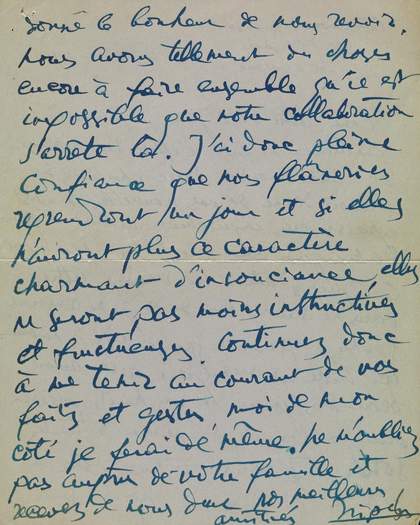 donné le bonheur de nous revoir.
nous avons tellement de choses
encore à faire ensemble qu'il est
impossible que notre collaboration
s'arrête là. J'ai donc pleine
confiance que nos flâneries
reprendront un jour et si elles
n'auront plus ce caractère
charmant d'insouciance, elles
ne seront pas moins instructives
et fructueuses. Continuez donc
à me tenir au courant de vos
faits et gestes, moi de mon
côté je ferai de même. ne m'oubliez
pas auprès de votre famille et
recevez de nous deux nos meilleures
amitiés